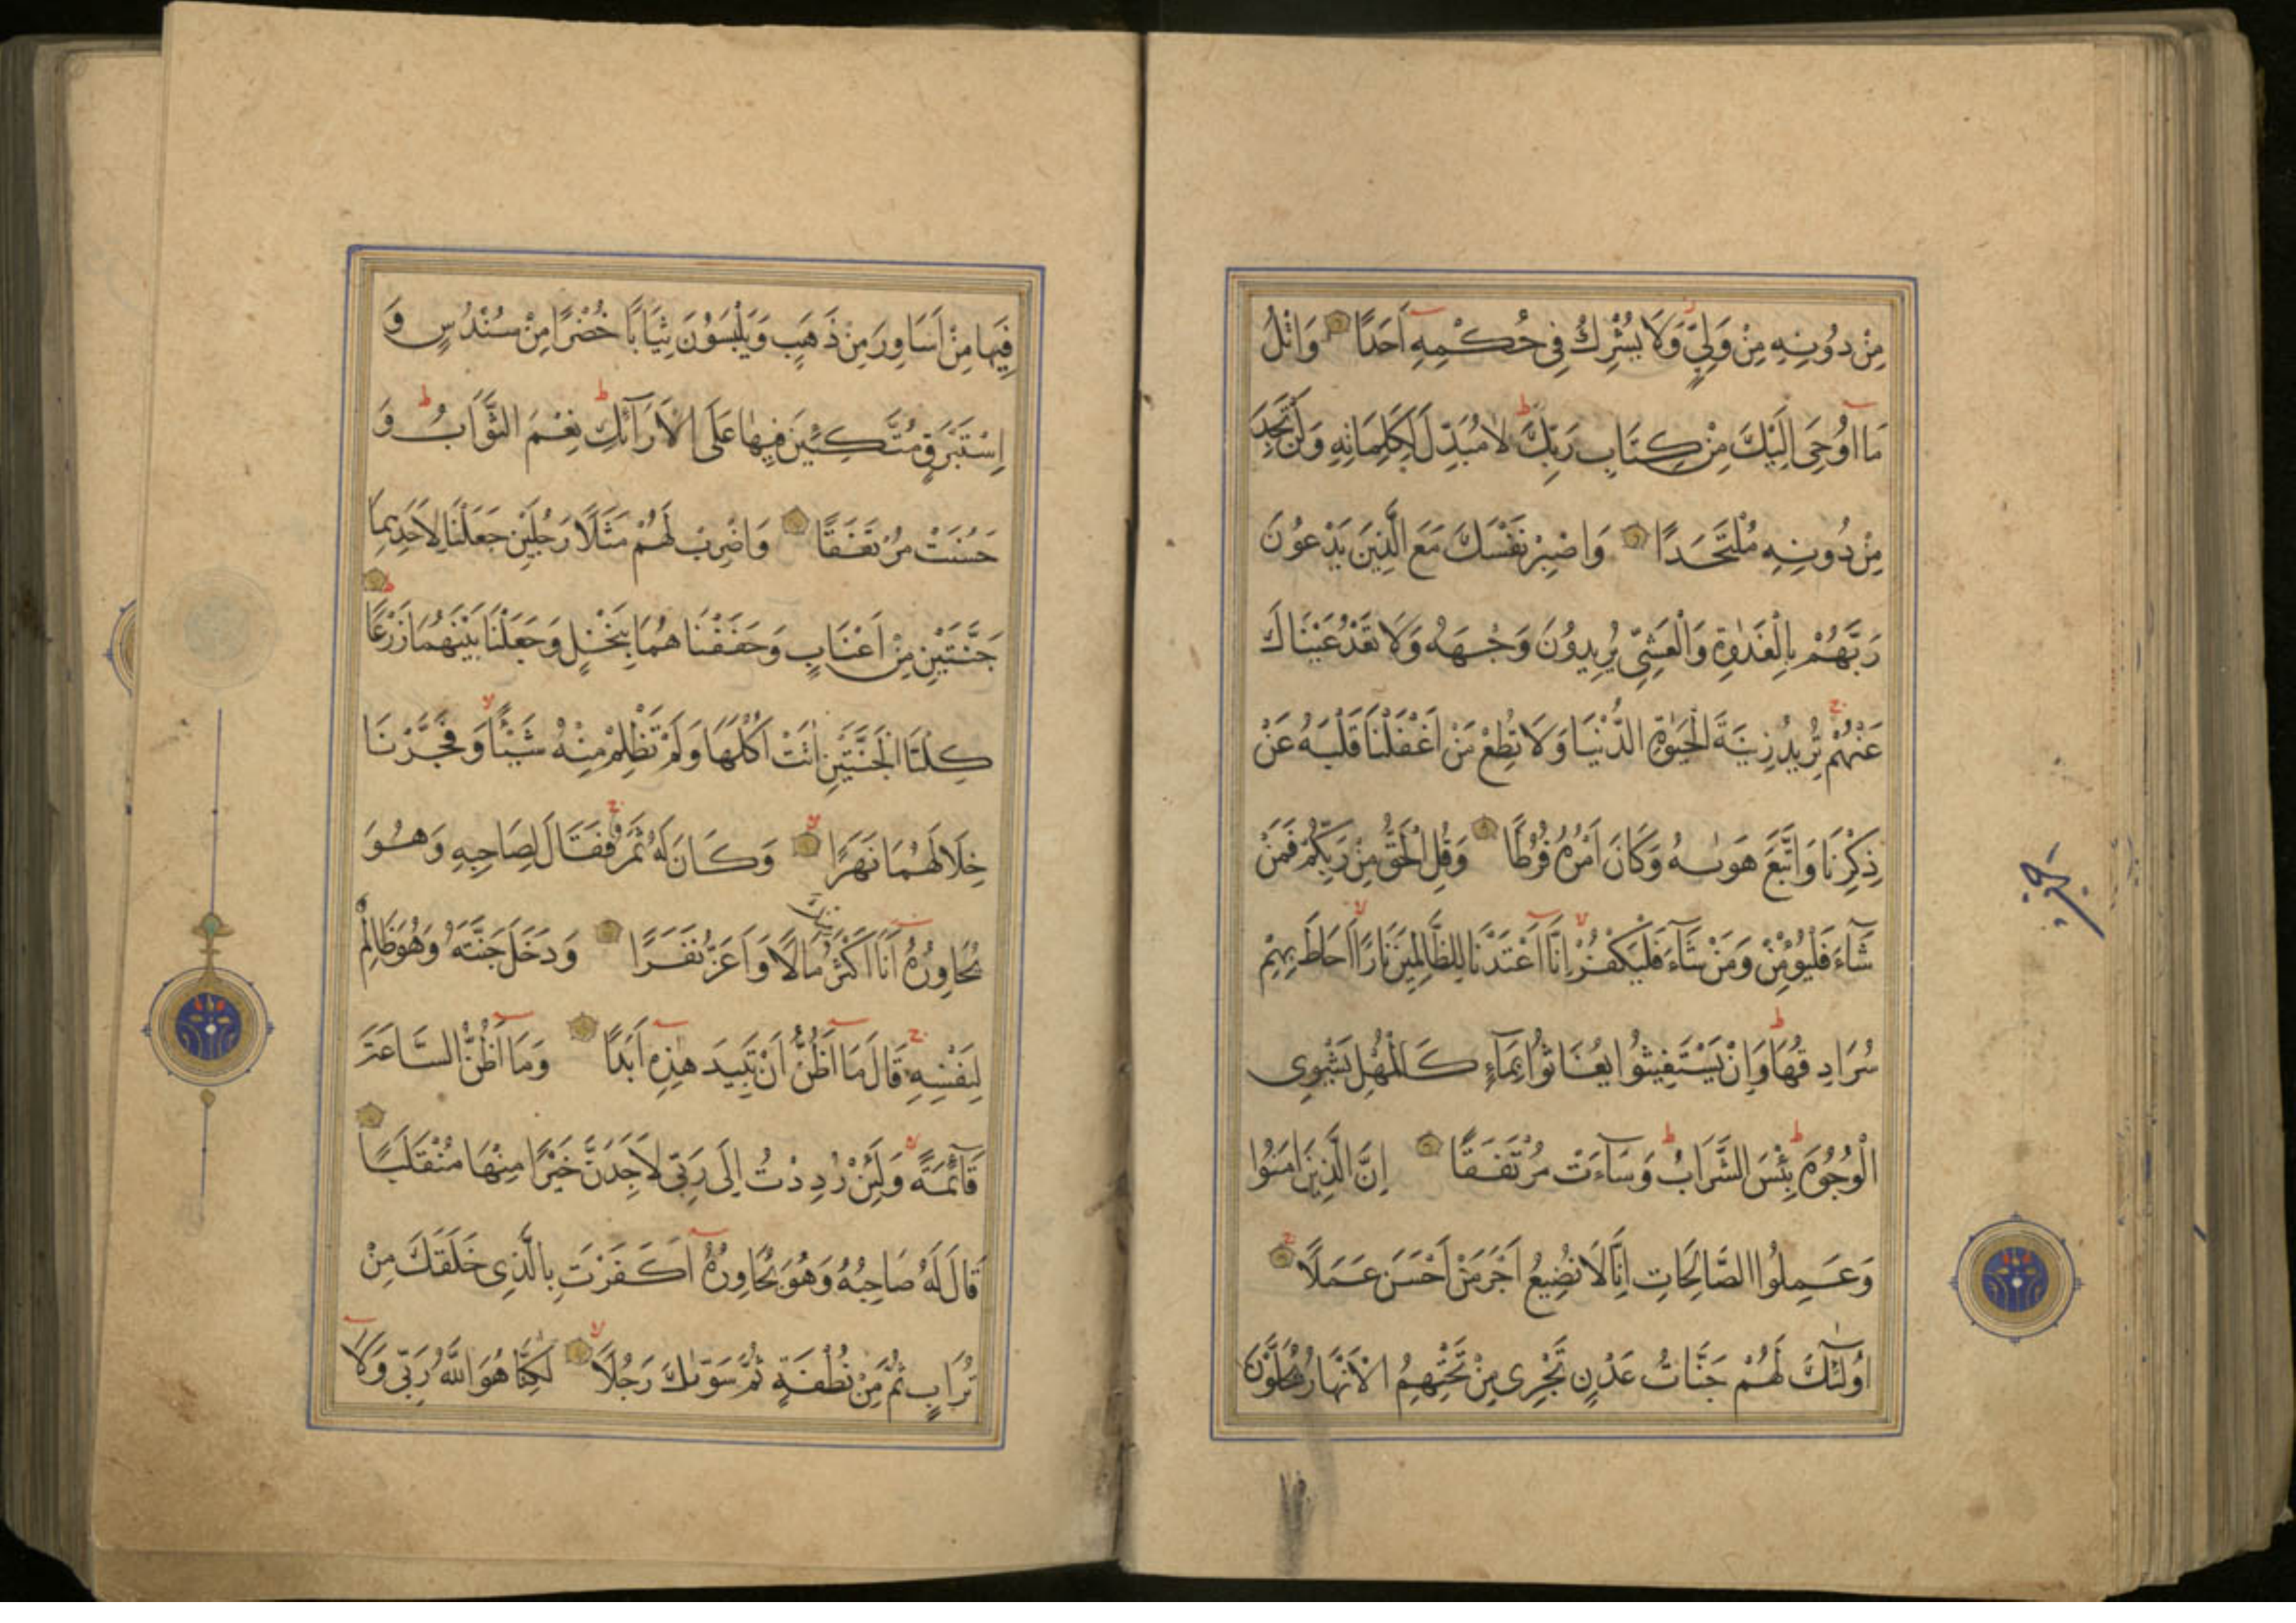 مِنْ دُونِهِ مِنْ وَلِيٍّ وَلَا يُشْرِكُ فِي حُكْمِهِ اَحَدًا وَاتْلُ
مَا اُوحِيَ اِلَيْكَ مِنْ كِتَابِ رَبِّكَ لَا مُبَدِّلَ لِكَلِمَاتِهِ وَلَنْ تَجِدَ
مِنْ دُونِهِ مُلْتَحَدًا وَاصْبِرْ نَفْسَكَ مَعَ الَّذِينَ يَدْعُونَ
رَبَّهُمْ بِالْغَدٰوةِ وَالْعَشِيِّ يُرِيدُونَ وَجْهَهُ وَلَا تَعْدُ عَيْنَاكَ
عَنْهُمْ تُرِيدُ زِينَةَ الْحَيٰوةِ الدُّنْيَا وَلَا تُطِعْ مَنْ اَغْفَلْنَا قَلْبَهُ عَنْ
ذِكْرِنَا وَاتَّبَعَ هَوٰيهُ وَكَانَ اَمْرُهُ فُرُطًا وَقُلِ الْحَقُّ مِنْ رَبِّكُمْ فَمَنْ
شَآءَ فَلْيُؤْمِنْ وَمَنْ شَآءَ فَلْيَكْفُرْ اِنَّا اَعْتَدْنَا لِلظَّالِمِينَ نَارًا اَحَاطَ بِهِمْ
سُرَادِقُهَا وَاِنْ يَسْتَغِيثُوا يُغَاثُوا بِمَآءٍ كَالْمُهْلِ يَشْوِي
الْوُجُوهَ بِئْسَ الشَّرَابُ وَسَآءَتْ مُرْتَفَقًا اِنَّ الَّذِينَ اٰمَنُوا
وَعَمِلُوا الصَّالِحَاتِ اِنَّا لَا نُضِيعُ اَجْرَ مَنْ اَحْسَنَ عَمَلًا
اُولٰٓئِكَ لَهُمْ جَنَّاتُ عَدْنٍ تَجْرِي مِنْ تَحْتِهِمُ الْاَنْهَارُ يُحَلَّوْنَ
فِيهَا مِنْ اَسَاوِرَ مِنْ ذَهَبٍ وَيَلْبَسُونَ ثِيَابًا خُضْرًا مِنْ سُنْدُسٍ وَ
اِسْتَبْرَقٍ مُتَّكِئِينَ فِيهَا عَلَى الْاَرَآئِكِ نِعْمَ الثَّوَابُ وَ
حَسُنَتْ مُرْتَفَقًا وَاضْرِبْ لَهُمْ مَثَلًا رَجُلَيْنِ جَعَلْنَا لِاَحَدِهِمَا
جَنَّتَيْنِ مِنْ اَعْنَابٍ وَحَفَفْنَاهُمَا بِنَخْلٍ وَجَعَلْنَا بَيْنَهُمَا زَرْعًا
كِلْتَا الْجَنَّتَيْنِ اٰتَتْ اُكُلَهَا وَلَمْ تَظْلِمْ مِنْهُ شَيْئًا وَفَجَّرْنَا
خِلَالَهُمَا نَهَرًا وَكَانَ لَهُ ثَمَرٌ فَقَالَ لِصَاحِبِهِ وَهُوَ
يُحَاوِرُهُ اَنَا اَكْثَرُ مِنْكَ مَالًا وَاَعَزُّ نَفَرًا وَدَخَلَ جَنَّتَهُ وَهُوَ ظَالِمٌ
لِنَفْسِهِ قَالَ مَا اَظُنُّ اَنْ تَبِيدَ هٰذِهِ اَبَدًا وَمَا اَظُنُّ السَّاعَةَ
قَآئِمَةً وَلَئِنْ رُدِدْتُ اِلَى رَبِّي لَاَجِدَنَّ خَيْرًا مِنْهَا مُنْقَلَبًا
قَالَ لَهُ صَاحِبُهُ وَهُوَ يُحَاوِرُهُ اَكَفَرْتَ بِالَّذِي خَلَقَكَ مِنْ
تُرَابٍ ثُمَّ مِنْ نُطْفَةٍ ثُمَّ سَوّٰيكَ رَجُلًا لٰكِنَّا هُوَ اللّٰهُ رَبِّي وَلَا